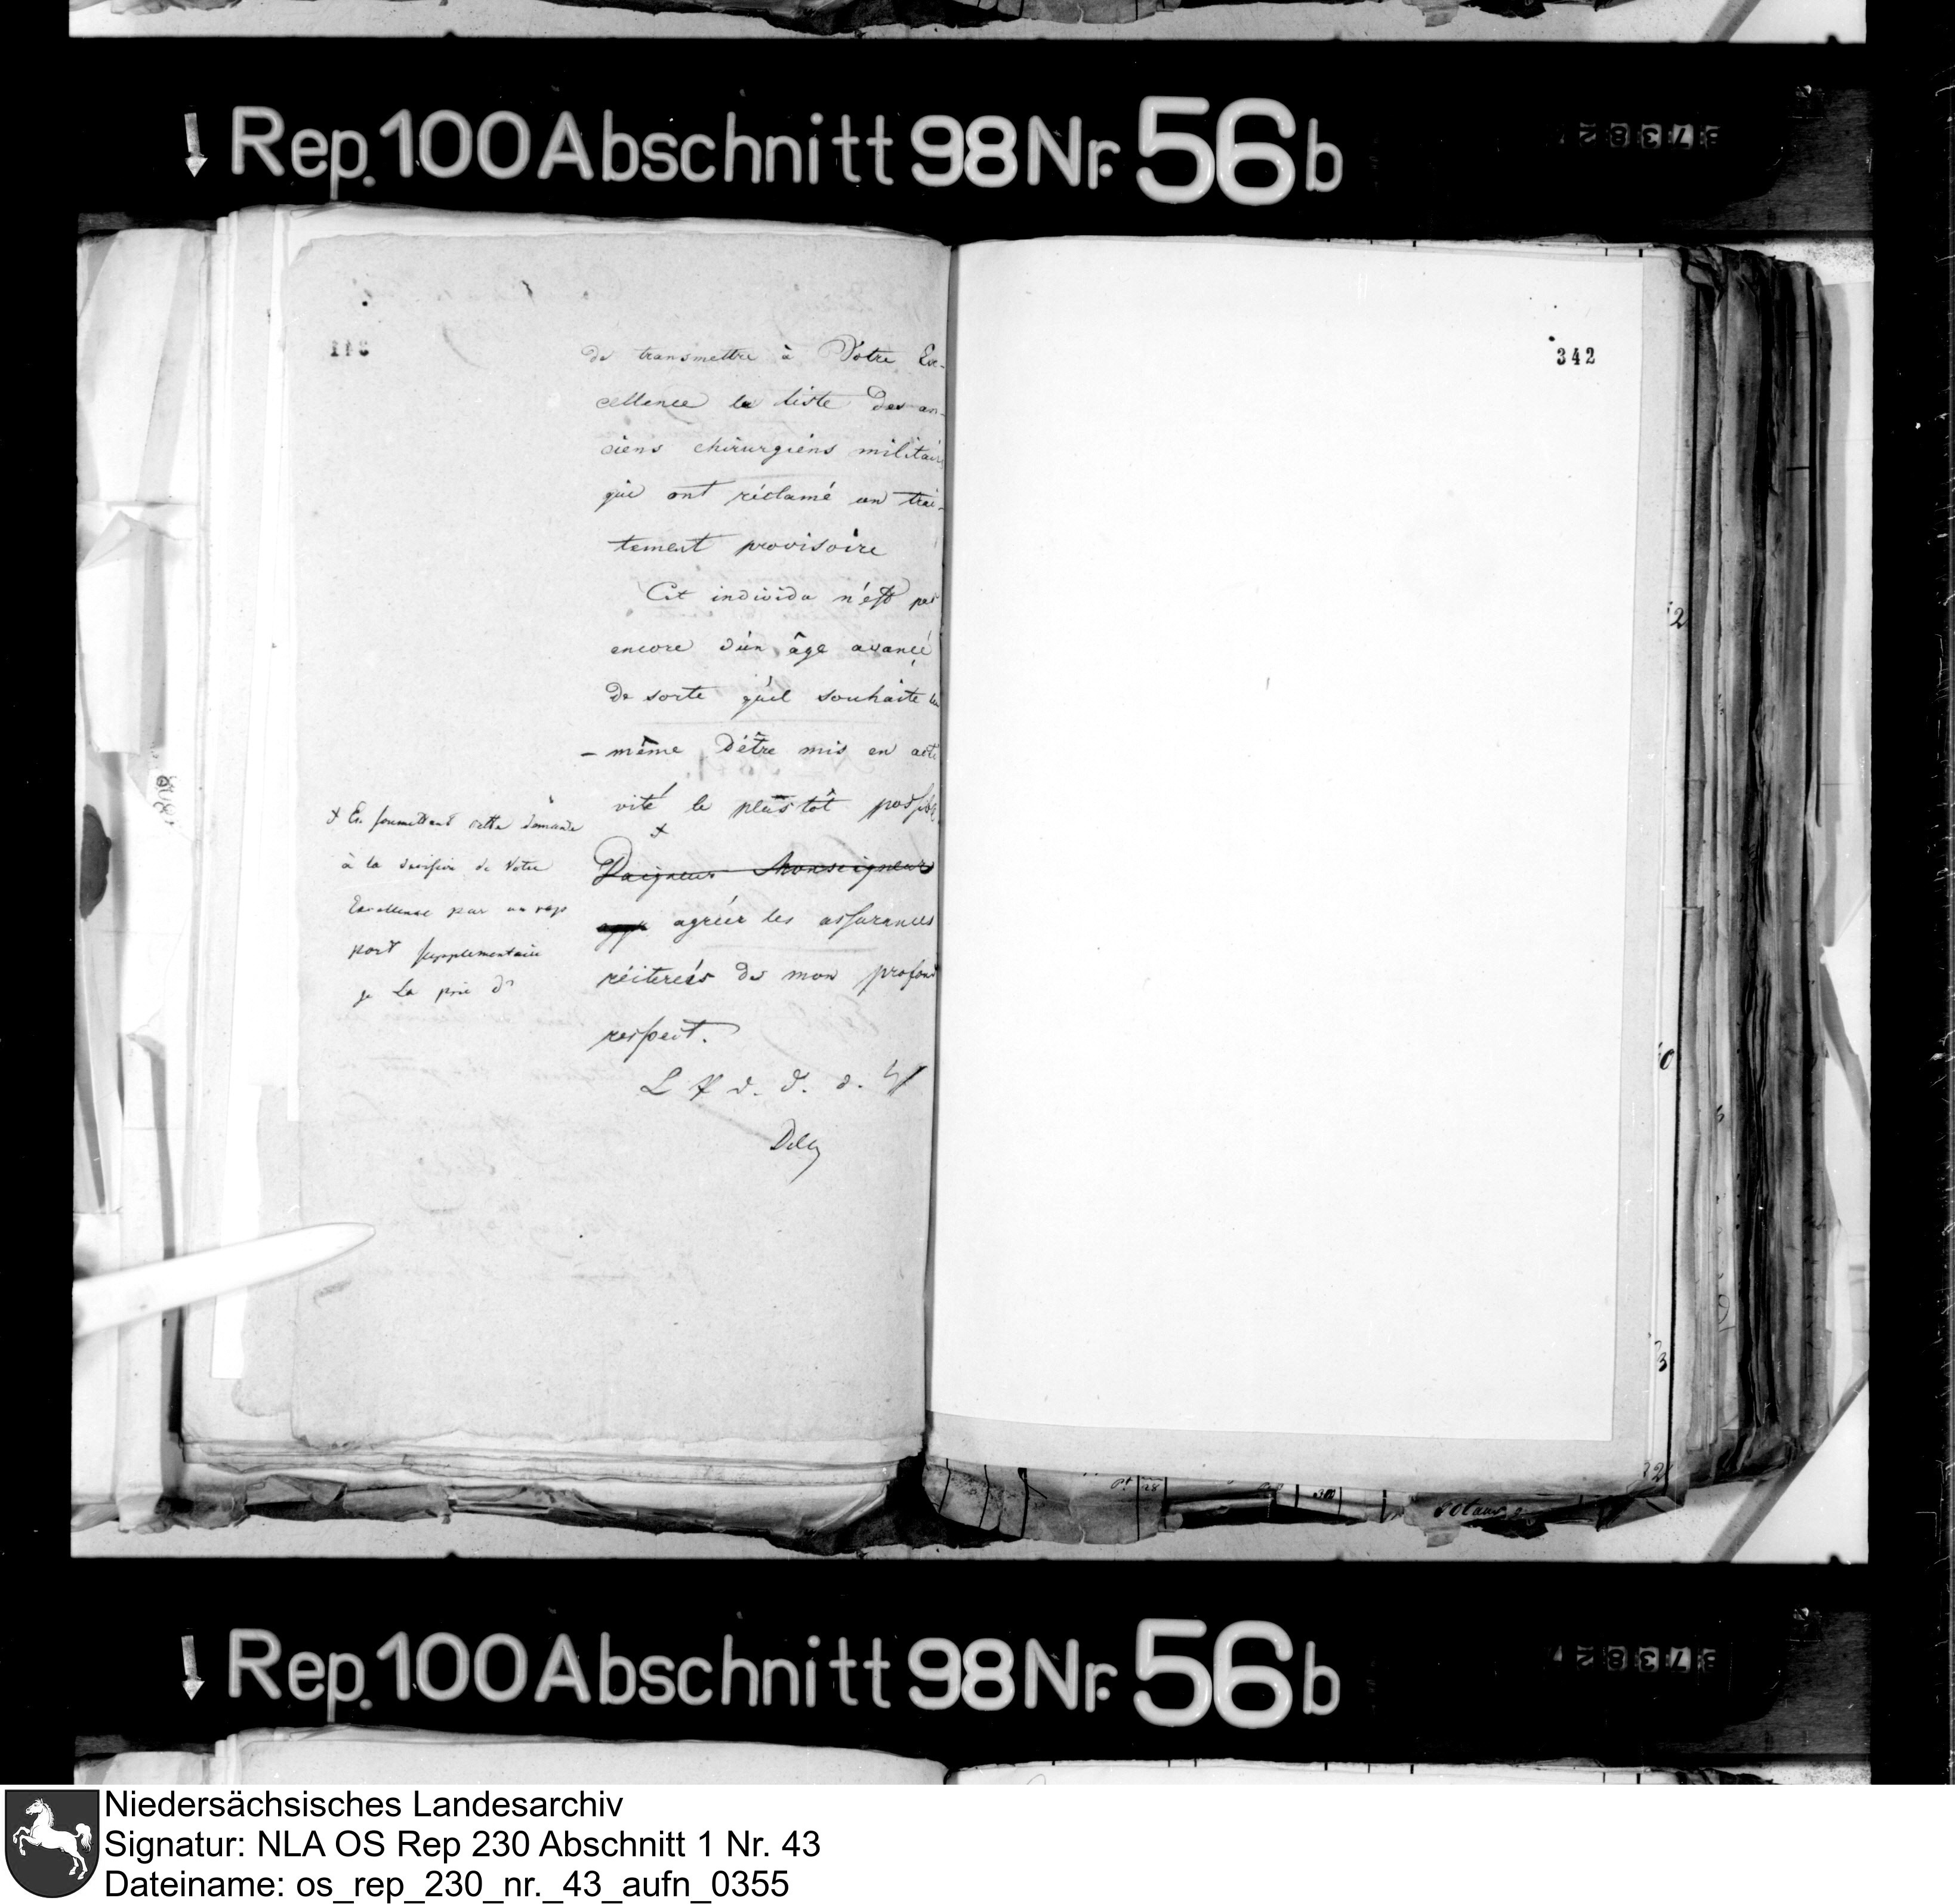 Rep. 100 Abschnitt 98 Nr. 56 b
de transmettre à Votre Ex-
cellence la liste des an-
ciens chirurgiens militair
qui ont réclamé un trai-
tement provisoire
Cet individu n'est pas
encore d'un âge avancé
de sorte qu'il souhaite lui
- même d'être mis en acti
vité le plustôt possible
+
Daigneur Monseigneur
agréér les assurances
réiterées de mon profond
respect.
L P d. d. d. H
+ En soumettant cette demande
à la decision de Votre
Excellence par un rap
port supplementaire
je La prie d'
342
Rep. 100 Abschnitt 98 Nr. 56 b
Niedersächsisches Landesarchiv
Signatur: NLA OS Rep 230 Abschnitt 1 Nr. 43
Dateiname: os_rep_230_nr._43_aufn_0355